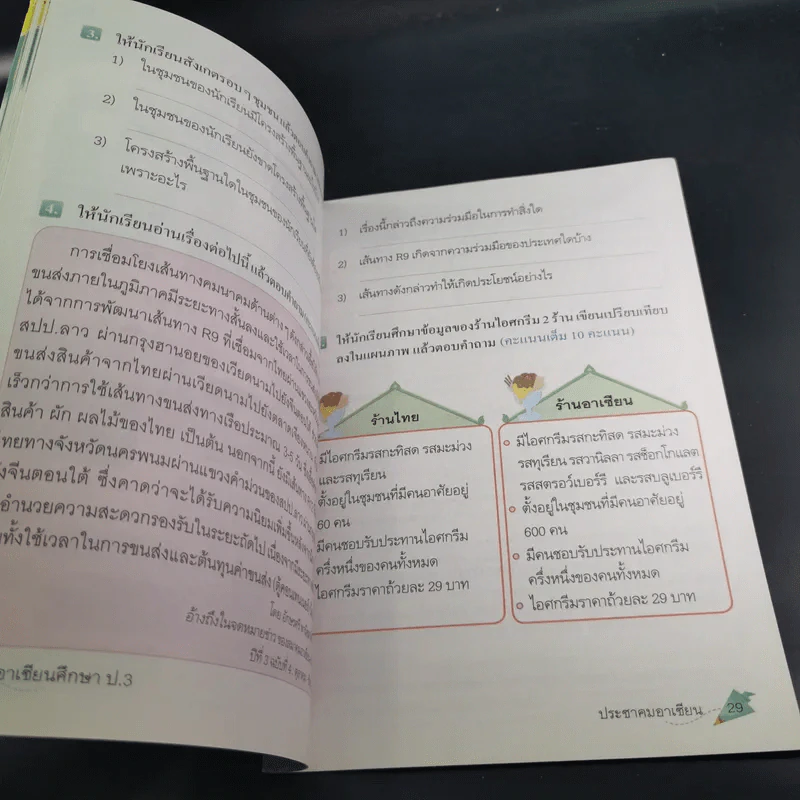 3. ให้นักเรียนสังเกตรอบๆ ชุมชน แล้วตอบ
1) ในชุมชนของนักเรียนมีโครงสร้างพื้นฐาน
2) ในชุมชนของนักเรียนยังขาดโครงสร้างพื้นฐาน
3) โครงสร้างพื้นฐานใดในชุมชนของนักเรียน
เพราะอะไร
4. ให้นักเรียนอ่านเรื่องต่อไปนี้ แล้วตอบคำถาม
การเชื่อมโยงเส้นทางคมนาคมด้านต่างๆ
ขนส่งภายในภูมิภาคมีระยะทางสั้นลงและใช้เวลา
ได้จากการพัฒนาเส้นทาง R9 ที่เชื่อมจากไทยผ่าน
สปป.ลาว ผ่านกรุงฮานอยของเวียดนามไปยังจีนตอนใต้
ขนส่งสินค้าจากไทยผ่านเวียดนามไปยังตลาด
เร็วกว่าการใช้เส้นทางขนส่งทางเรือประมาณ 3-5 วัน
สินค้า ผัก ผลไม้ของไทย เป็นต้น นอกจากนี้ ยังมีเส้นทาง
ไทยทางจังหวัดนครพนมผ่านแขวงคำม่วนของสปป.ลาว
งจีนตอนใต้ ซึ่งคาดว่าจะได้รับความนิยมเพิ่มขึ้น
อำนวยความสะดวกรองรับในระยะถัดไป เนื่องจาก
ทั้งใช้เวลาในการขนส่งและต้นทุนค่าขนส่ง
โดย
อ้างถึงในจดหมายข่าว
ปีที่ 3 ฉบับที่ 4
อาเซียนศึกษา ป.3
1) เรื่องนี้กล่าวถึงความร่วมมือในการทำสิ่งใด
2) เส้นทาง R9 เกิดจากความร่วมมือของประเทศใดบ้าง
3) เส้นทางดังกล่าวทำให้เกิดประโยชน์อย่างไร
ให้นักเรียนศึกษาข้อมูลของร้านไอศกรีม 2 ร้าน เขียนเปรียบเทียบ
ลงในแผนภาพ แล้วตอบคำถาม (คะแนนเต็ม 10 คะแนน)
ร้านไทย
มีไอศกรีมรสกะทิสด รสมะม่วง
และรสทุเรียน
ตั้งอยู่ในชุมชนที่มีคนอาศัยอยู่
60 คน
มีคนชอบรับประทานไอศกรีม
ครึ่งหนึ่งของคนทั้งหมด
ไอศกรีมราคาถ้วยละ 29 บาท
ร้านอาเซียน
มีไอศกรีมรสกะทิสด รสมะม่วง
รสทุเรียน รสวานิลลา รสช็อกโกแลต
รสสตรอว์เบอร์รี และรสบลูเบอร์รี
ตั้งอยู่ในชุมชนที่มีคนอาศัยอยู่
600 คน
มีคนชอบรับประทานไอศกรีม
ครึ่งหนึ่งของคนทั้งหมด
ไอศกรีมราคาถ้วยละ 29 บาท
ประชาคมอาเซียน 29